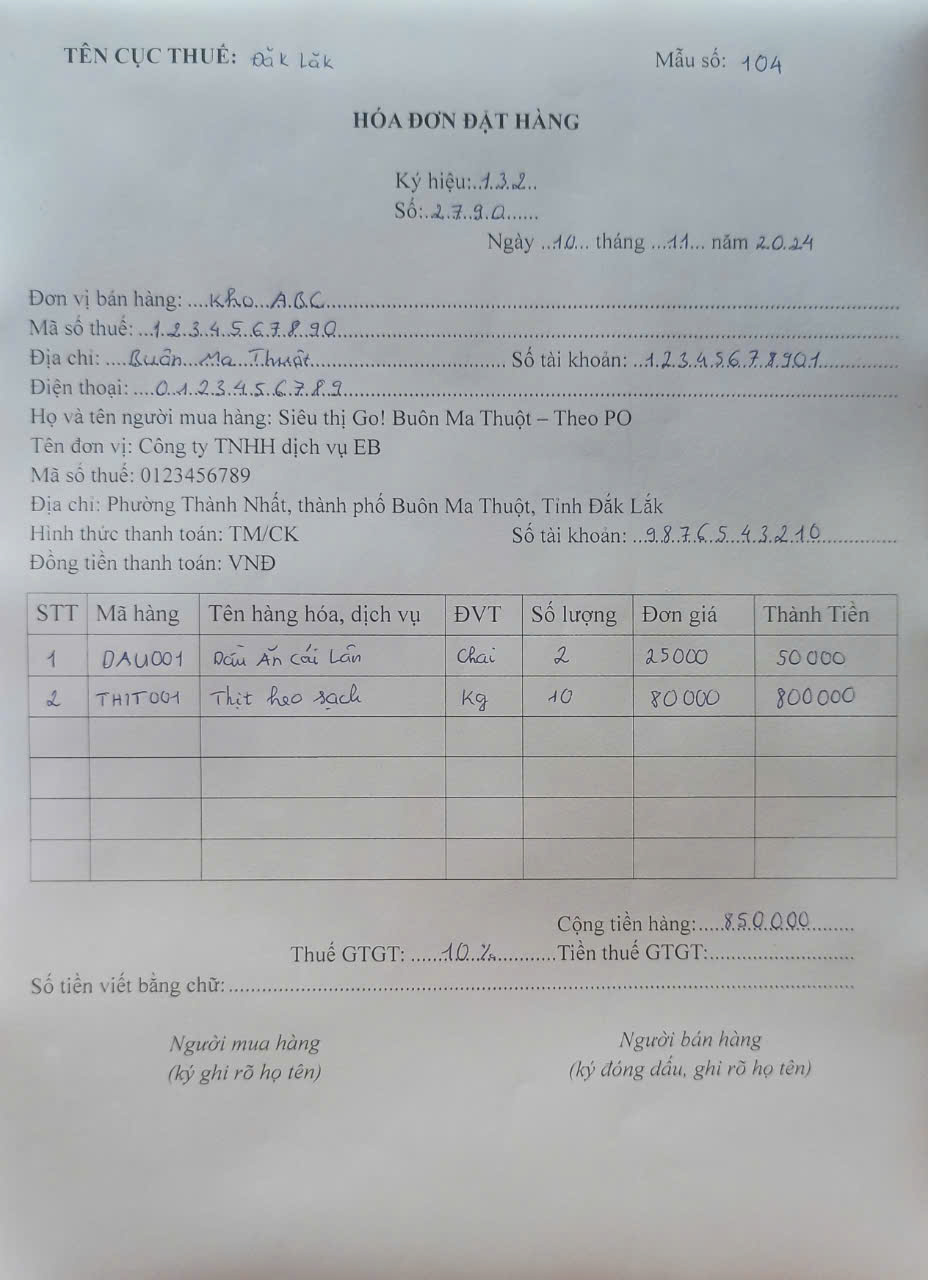 TÊN CỤC THUẾ: Đăk Lăk Mẫu số: 104
HÓA ĐƠN ĐẶT HÀNG
Ký hiệu:..1.3.2..
Số:..2.7..9.0......
Ngày ..10... tháng ...11... năm 2.0.24
Đơn vị bán hàng: ....Kho...A.B.C....
Mã số thuế: ...1.2.3.4.5.6.7.8.9.0....
Địa chỉ: ....Buôn...Ma..Thuột.... Số tài khoản: ..1.2.3.4.5.6.7.8.9.0.1....
Điện thoại: ....0.1.2.3.4.5.6.7.8.9....
Họ và tên người mua hàng: Siêu thị Go! Buôn Ma Thuột – Theo PO
Tên đơn vị: Công ty TNHH dịch vụ EB
Mã số thuế: 0123456789
Địa chỉ: Phường Thành Nhất, thành phố Buôn Ma Thuột, Tỉnh Đắk Lắk
Hình thức thanh toán: TM/CK Số tài khoản: ..9.8.7.6.5..4.3.2.1.0....
Đồng tiền thanh toán: VNĐ
STT Mã hàng Tên hàng hóa, dịch vụ ĐVT Số lượng Đơn giá Thành Tiền
1 DAU001 Dầu Ăn Cái Lân Chai 2 25000 50000
2 THIT001 Thịt heo sạch Kg 10 80000 800000
Cộng tiền hàng:....8.5.0.0.0.0....
Thuế GTGT: ......10..%.... Tiền thuế GTGT:....
Số tiền viết bằng chữ:....
Người mua hàng Người bán hàng
(ký ghi rõ họ tên) (ký đóng dấu, ghi rõ họ tên)